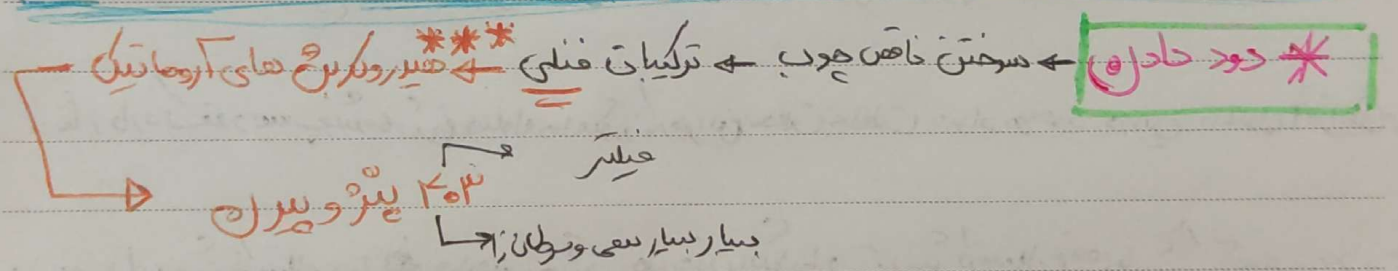 * دود دادن ← سوختن ناقص چوب ← ترکیبات فنلی ← *** هیدروکربن های آروماتیک
فیلتر
۳ و ۴ بنزوپیرن
بسیار بسیار سمی و سرطان زا